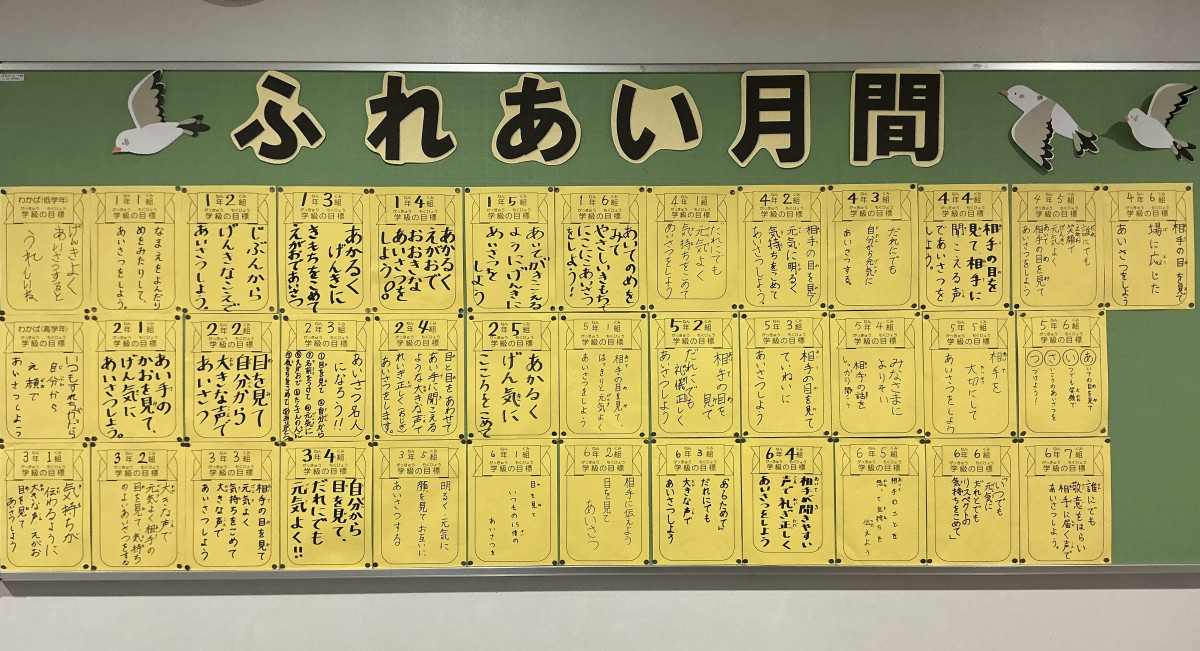 ふれあい月間
わかば(低学年)
学級の目標
げんきよく
あいさつすると
うれしいね
1年1組
学級の目標
なまえをよんだり
めをみたりして、
あいさつをしよう。
1年2組
学級の目標
じぶんから
げんきなこえで
あいさつしよう。
1年3組
学級の目標
あかるく
げんきに
きもちをこめて
えがおであいさつ
1年4組
学級の目標
あかるく
えがおで
おおきな
あいさつを
しよう。
1年5組
学級の目標
あいてがきこえる
ようにげんきに
あいさつを
しよう
1年6組
学級の目標
あいてのめを
みて
やさしいきもちで
にこにこあいさつ
をしよう!
4年1組
学級の目標
だれにでも
元気よく
気持ちをこめて
あいさつをしよう
4年2組
学級の目標
相手の目を見て
元気に明るく
気持ちをこめて
あいさつしよう。
4年3組
学級の目標
だれにでも
自分から元気に
あいさつする
4年4組
学級の目標
相手の目を
見て相手に
聞こえる声
であいさつを
しよう。
4年5組
学級の目標
誰にでも
笑顔で
元気よく
あいての目を見て
相手に聞こえる声で
あいさつをしよう
4年6組
学級の目標
相手の目を見て
場に応じた
あいさつをしよう
わかば(高学年)
学級の目標
いつもすれちがったら
自分から
え顔で
あいさつしよう
2年1組
学級の目標
あい手の
かおを見て、
げん気に、
あいさつしよう。
2年2組
学級の目標
目を見て
自分から
大きな声で
あいさつ
2年3組
学級の目標
あいさつ名人
になろう!!
①目を見て
②自分から
③名前をつけて
④元気に
⑤えがおで
⑥たくさんの人に
2年4組
学級の目標
目と目をあわせて
あい手に聞こえる
ような大きな声で
れいぎ正しく(おじぎ)
あいさつをします。
2年5組
学級の目標
あかるく
げん気に
こころをこめて
5年1組
学級の目標
相手の目を見て、
はっきりと元気よく
あいさつをしよう
5年2組
学級の目標
相手の目を
見て
だれにでも
礼儀正しく
あいさつしよう
5年3組
学級の目標
相手の目を見て
ていねいに
あいさつしよう
5年4組
学級の目標
みなさまに
よりそい
相手の話を
しっかり聞こう
5年5組
学級の目標
相手を
大切にして
あいさつしよう
5年6組
学級の目標
あいての目を見て
いつでも笑顔で
さ
つづけよう!
3年1組
学級の目標
気持ちが
伝わるように
大きな声、えがお
目を見て
あいさつしよう
3年2組
学級の目標
大きな声で
元気よく相手の
目を見て、気持ち
のよいあいさつをする
3年3組
学級の目標
相手の目を見て
元気よく
気持ちをこめて
大きな声で
あいさつしよう
3年4組
学級の目標
自分から
目を見て、
だれにでも
元気よく!!
3年5組
学級の目標
明るく元気に
顔を見てお互いに
あいさつする
6年1組
学級の目標
目を見て
いつもの1.5倍の
あいさつを
6年2組
学級の目標
相手に伝えよう
目を見て
あいさつ
6年3組
学級の目標
「あらためて」
だれにでも
大きな声で
あいさつしよう
6年4組
学級の目標
相手が聞きやすい
声で礼ぎ正しく
あいさつをしよう
6年5組
学級の目標
相手のことを
思って気持ちを
伝えよう
6年6組
学級の目標
「いつでも
元気に
だれとでも
リスペクトの
気持ちをこめて」
6年7組
学級の目標
誰にでも
敬意をはらい
相手に届く声で
あいさつしよう。